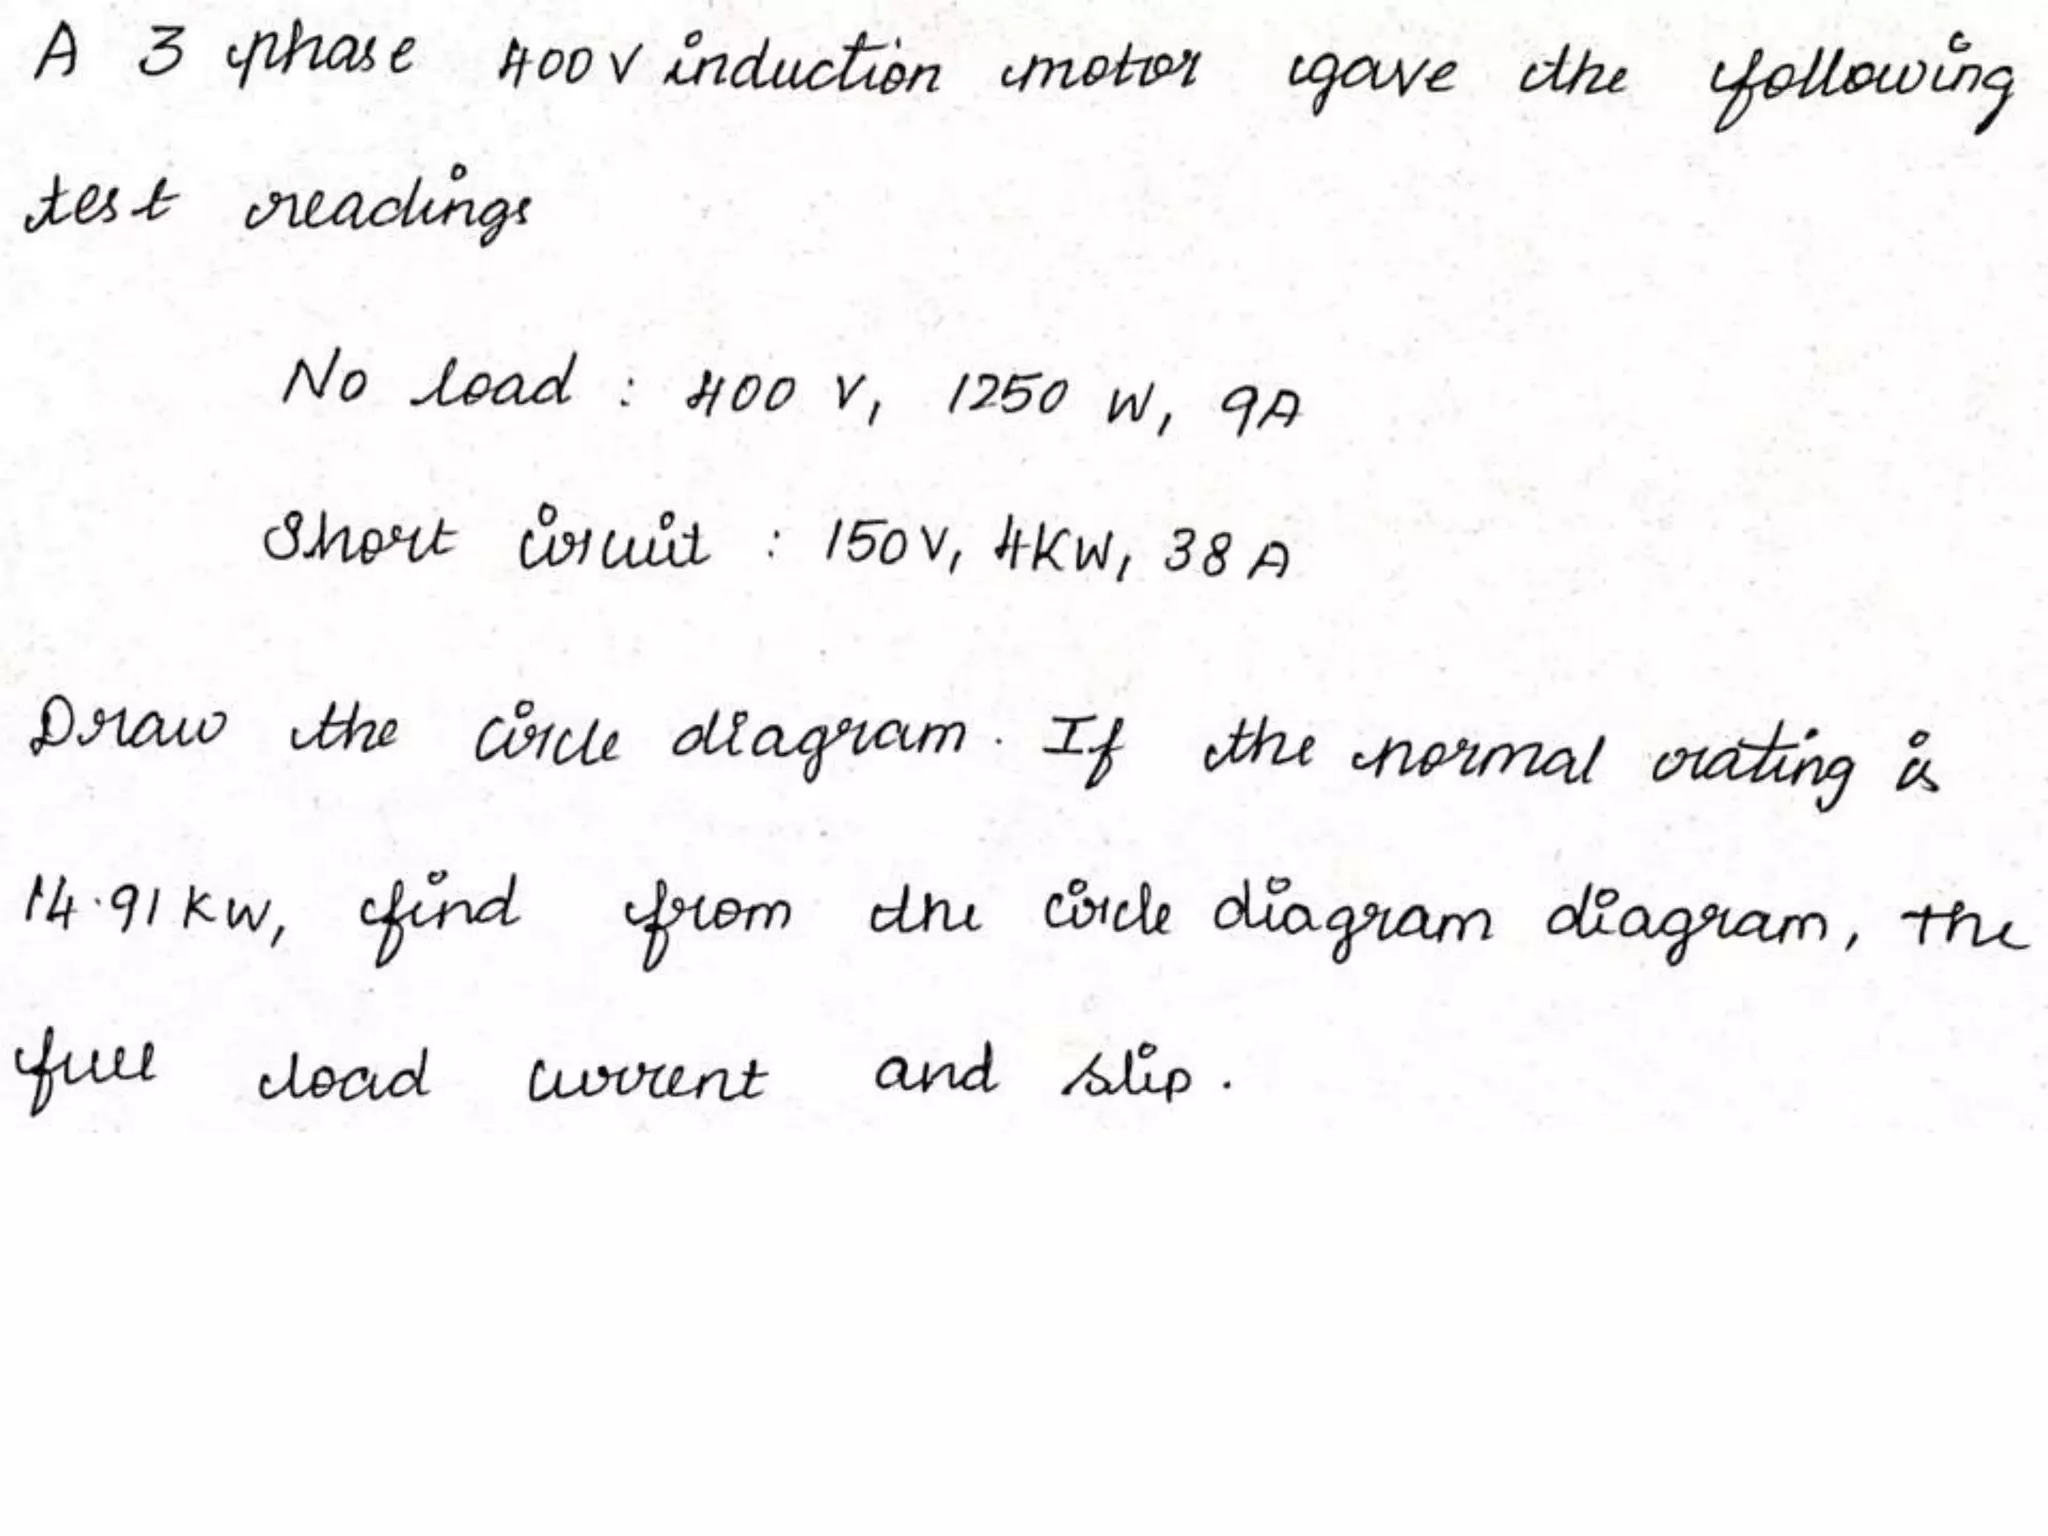 A 3 phase 400V induction motor gave the following
test readings
No load : 400 V, 1250 W, 9A
Short circuit : 150V, 4KW, 38 A
Draw the circle diagram. If the normal rating is
14.91 KW, find from the circle diagram diagram, the
full load current and slip.